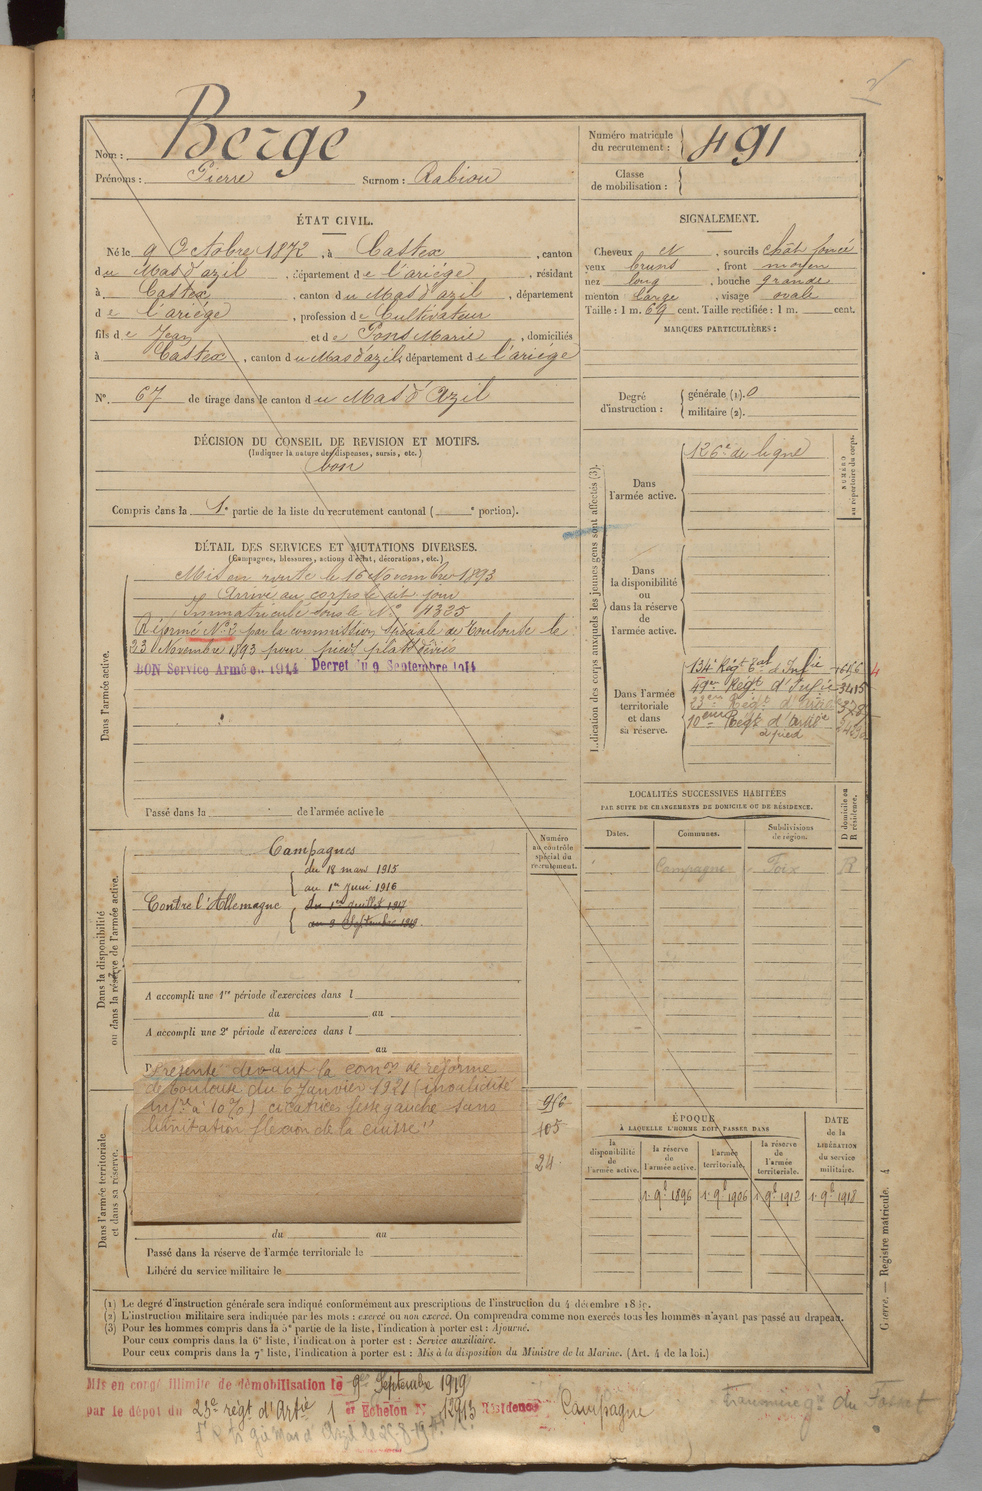 Nom : Bergé
Prénoms : Pierre Surnom : Rabiou
Numéro matricule du recrutement : 491
Classe de mobilisation :
ÉTAT CIVIL.
Né le 9 Octobre 1872, à Castex, canton
du Mas d'azil, département de l'ariége, résidant
à Castex, canton du Mas d'azil, département
de l'ariége, profession de Cultivateur
fils de Jean et de Pons Marie, domiciliés
à Castex, canton du Mas d'azil, département de l'ariége
N°. 67 de tirage dans le canton du Mas d'Azil
SIGNALEMENT.
Cheveux et, sourcils chât foncé
yeux bruns, front moyen
nez long, bouche grande
menton large, visage ovale
Taille : 1 m. 69 cent. Taille rectifiée : 1 m. cent.
MARQUES PARTICULIÈRES :
Degré d'instruction : générale (1). 0
militaire (2).
DÉCISION DU CONSEIL DE REVISION ET MOTIFS.
(Indiquer la nature des dispenses, sursis, etc.)
bon
Compris dans la 1e partie de la liste du recrutement cantonal ( e portion).
DÉTAIL DES SERVICES ET MUTATIONS DIVERSES.
(Campagnes, blessures, actions d'éclat, décorations, etc.)
Dans l'armée active.
Mis en route le 16 Novembre 1893
Arrivé au corps le dit jour
Immatriculé sous le N° 4325
Réformé N° 2 par la commission spéciale de Toulouse le
23 Novembre 1893 pour pieds plats déviés
BON Service Armé en 1914 Décret du 9 Septembre 1914
Passé dans la de l'armée active le
Indication des corps auxquels les jeunes gens sont affectés (3).
NUMÉRO au répertoire du corps.
Dans l'armée active.
126e de ligne
Dans la disponibilité ou dans la réserve de l'armée active.
Dans l'armée territoriale et dans sa réserve.
134e Régt Eal d'Infie
Régt d'Infie 3415
23eme Régt d'Artie
10eme Regt d'Artie
à pied
LOCALITÉS SUCCESSIVES HABITÉES
PAR SUITE DE CHANGEMENTS DE DOMICILE OU DE RÉSIDENCE.
Dates. Communes. Subdivisions de région. D domicile ou R résidence.
Campagne Foix R
Dans la disponibilité ou dans la réserve de l'armée active.
Numéro au contrôle spécial du recrutement.
Campagnes
Contre l'Allemagne
du 18 mars 1915
au 1er Juin 1916
du 1er Juillet 1917
au 9 Septembre 1919.
A accompli une 1re période d'exercices dans l
du au
A accompli une 2e période d'exercices dans l
du au
Dans l'armée territoriale et dans sa réserve.
Présenté devant la comon de réforme
de Toulouse du 6 Janvier 1921 (invalidité
infre à 10%) cicatrice fesse gauche sans
limitation flexion de la cuisse"
956
105
24
du au
Passé dans la réserve de l'armée territoriale le
Libéré du service militaire le
ÉPOQUE
À LAQUELLE L'HOMME DOIT PASSER DANS
la disponibilité de l'armée active. la réserve de l'armée active. l'armée territoriale. la réserve de l'armée territoriale. DATE de la LIBÉRATION du service militaire.
1er 9b 1896 1er 9b 1906 1er 9b 1912 1er 9b 1918
(1) Le degré d'instruction générale sera indiqué conformément aux prescriptions de l'instruction du 4 décembre 1889.
(2) L'instruction militaire sera indiquée par les mots : exercé ou non exercé. On comprendra comme non exercés tous les hommes n'ayant pas passé au drapeau.
(3) Pour les hommes compris dans la 5e partie de la liste, l'indication à porter est : Ajourné.
Pour ceux compris dans la 6e liste, l'indication à porter est : Service auxiliaire.
Pour ceux compris dans la 7e liste, l'indication à porter est : Mis à la disposition du Ministre de la Marine. (Art. 4 de la loi.)
Guerre. — Registre matricule. 4
Mis en congé illimité de démobilisation le 9 Septembre 1919
par le dépôt du 23e régt d'Artie 1er Echelon N° 12913 Résidence Campagne